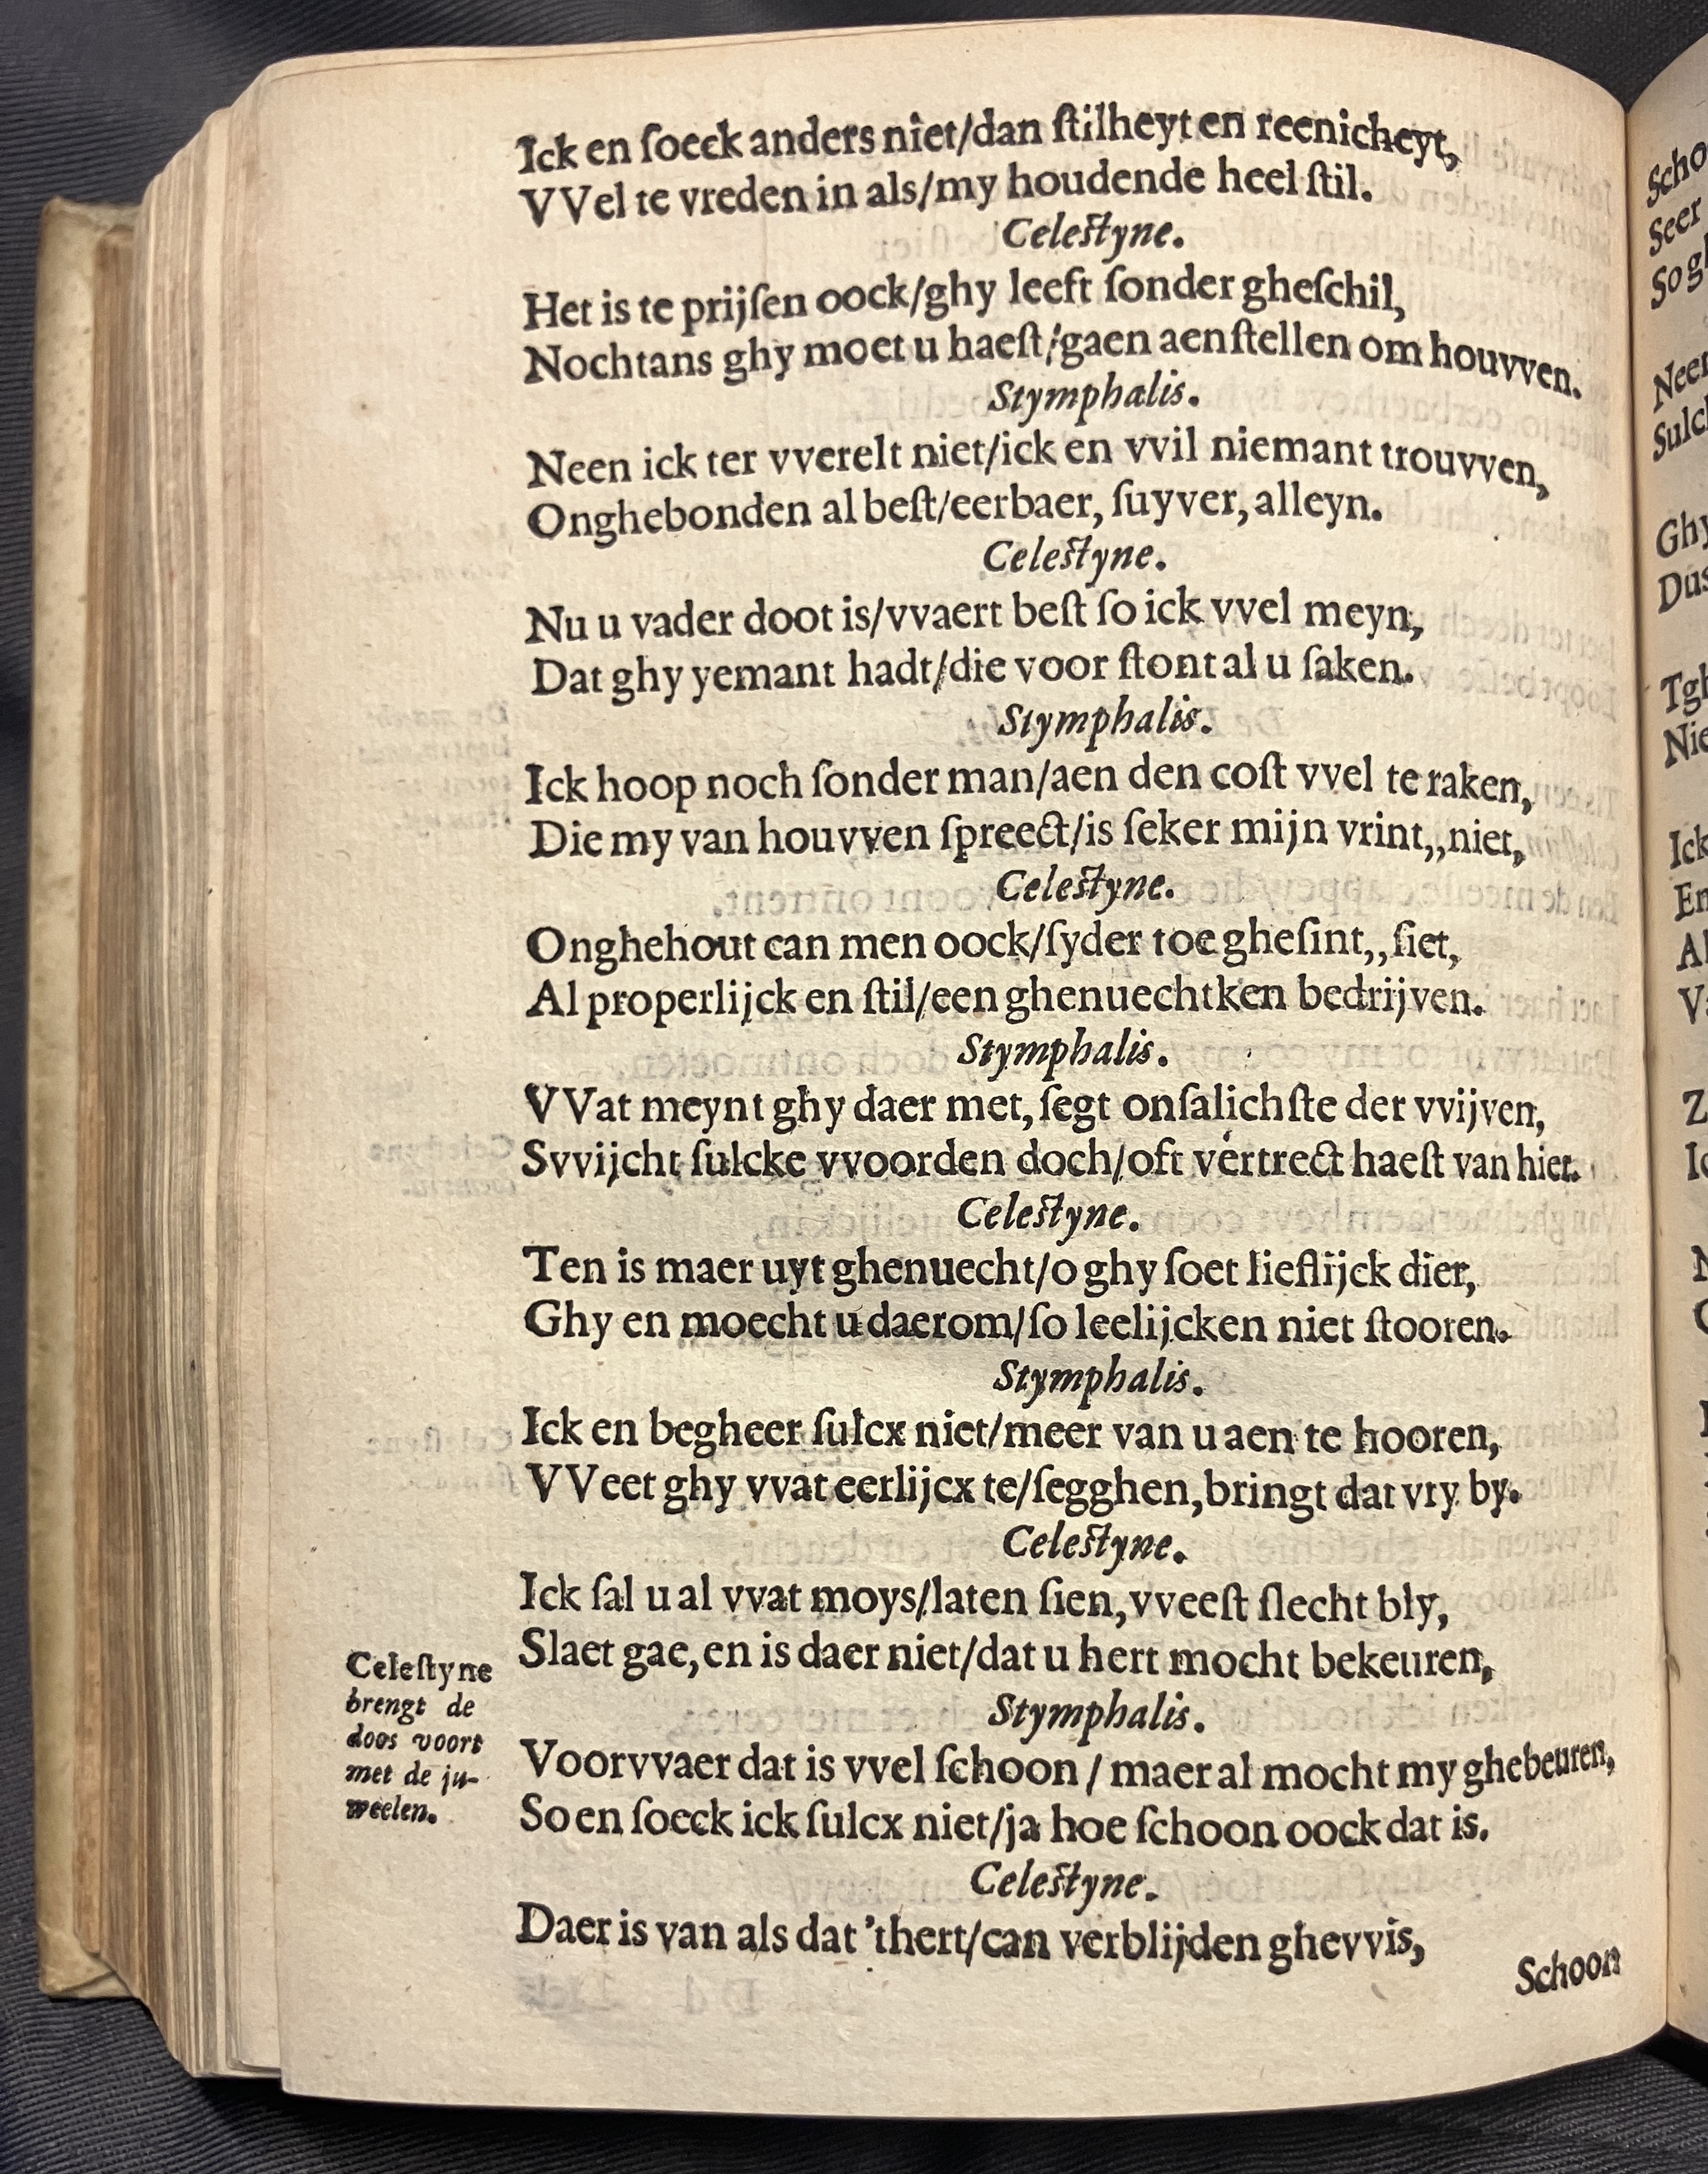 Ick en ſoeck anders niet/dan ſtilheyt en reenicheyt,
VVel te vreden in als/my houdende heel ſtil.
Celeſtyne.
Het is te prijſen oock/ghy leeft ſonder gheſchil,
Nochtans ghy moet u haeſt/gaen aenſtellen om houvven.
Stymphalis.
Neen ick ter vverelt niet/ick en vvil niemant trouvven,
Onghebonden al beſt/eerbaer, ſuyver, alleyn.
Celeſtyne.
Nu u vader doot is/vvaert beſt ſo ick vvel meyn,
Dat ghy yemant hadt/die voor ſtont al u ſaken.
Stymphalis.
Ick hoop noch ſonder man/aen den coſt vvel te raken,
Die my van houvven ſpreect/is ſeker mijn vrint,,niet,
Celeſtyne.
Onghehout can men oock/ſyder toe gheſint,,ſiet,
Al properlijck en ſtil/een ghenuechtken bedrijven.
Stymphalis.
VVat meynt ghy daer met, ſegt onſalichſte der vvijven,
Svvijcht ſulcke vvoorden doch/oft vertrect haeſt van hier.
Celeſtyne.
Ten is maer uyt ghenuecht/o ghy ſoet lieflijck dier,
Ghy en moecht u daerom/ſo leelijcken niet ſtooren.
Stymphalis.
Ick en begheer ſulcx niet/meer van u aen te hooren,
VVeet ghy vvat eerlijcx te/ſegghen, bringt dat vry by.
Celeſtyne.
Ick ſal u al vvat moys/laten ſien, vveeſt ſlecht bly,
Slaet gae, en is daer niet/dat u hert mocht bekeuren,
Celeſtyne
brengt de
doos voort
met de ju-
weelen.
Stymphalis.
Voorvvaer dat is vvel ſchoon / maer al mocht my ghebeuren,
So en ſoeck ick ſulcx niet/ja hoe ſchoon oock dat is.
Celeſtyne.
Daer is van als dat 'thert/can verblijden ghevvis,
Schoon
Scho
Seer
So gh
Neen
Sulc
Ghy
Dus
Tgh
Nie
Ick
En
Al